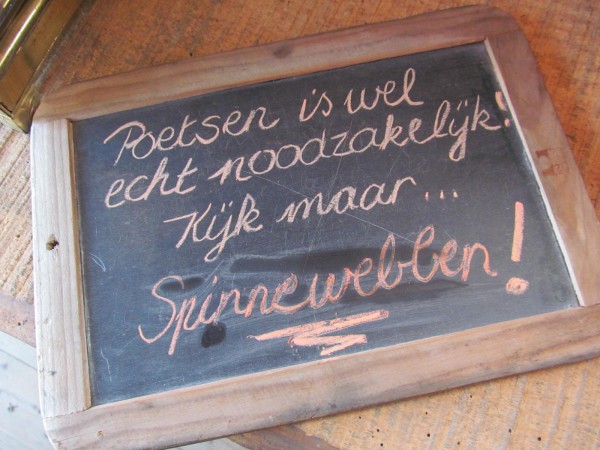 Poetsen is wel
echt noodzakelijk!
Kijk maar...
Spinnewebben!